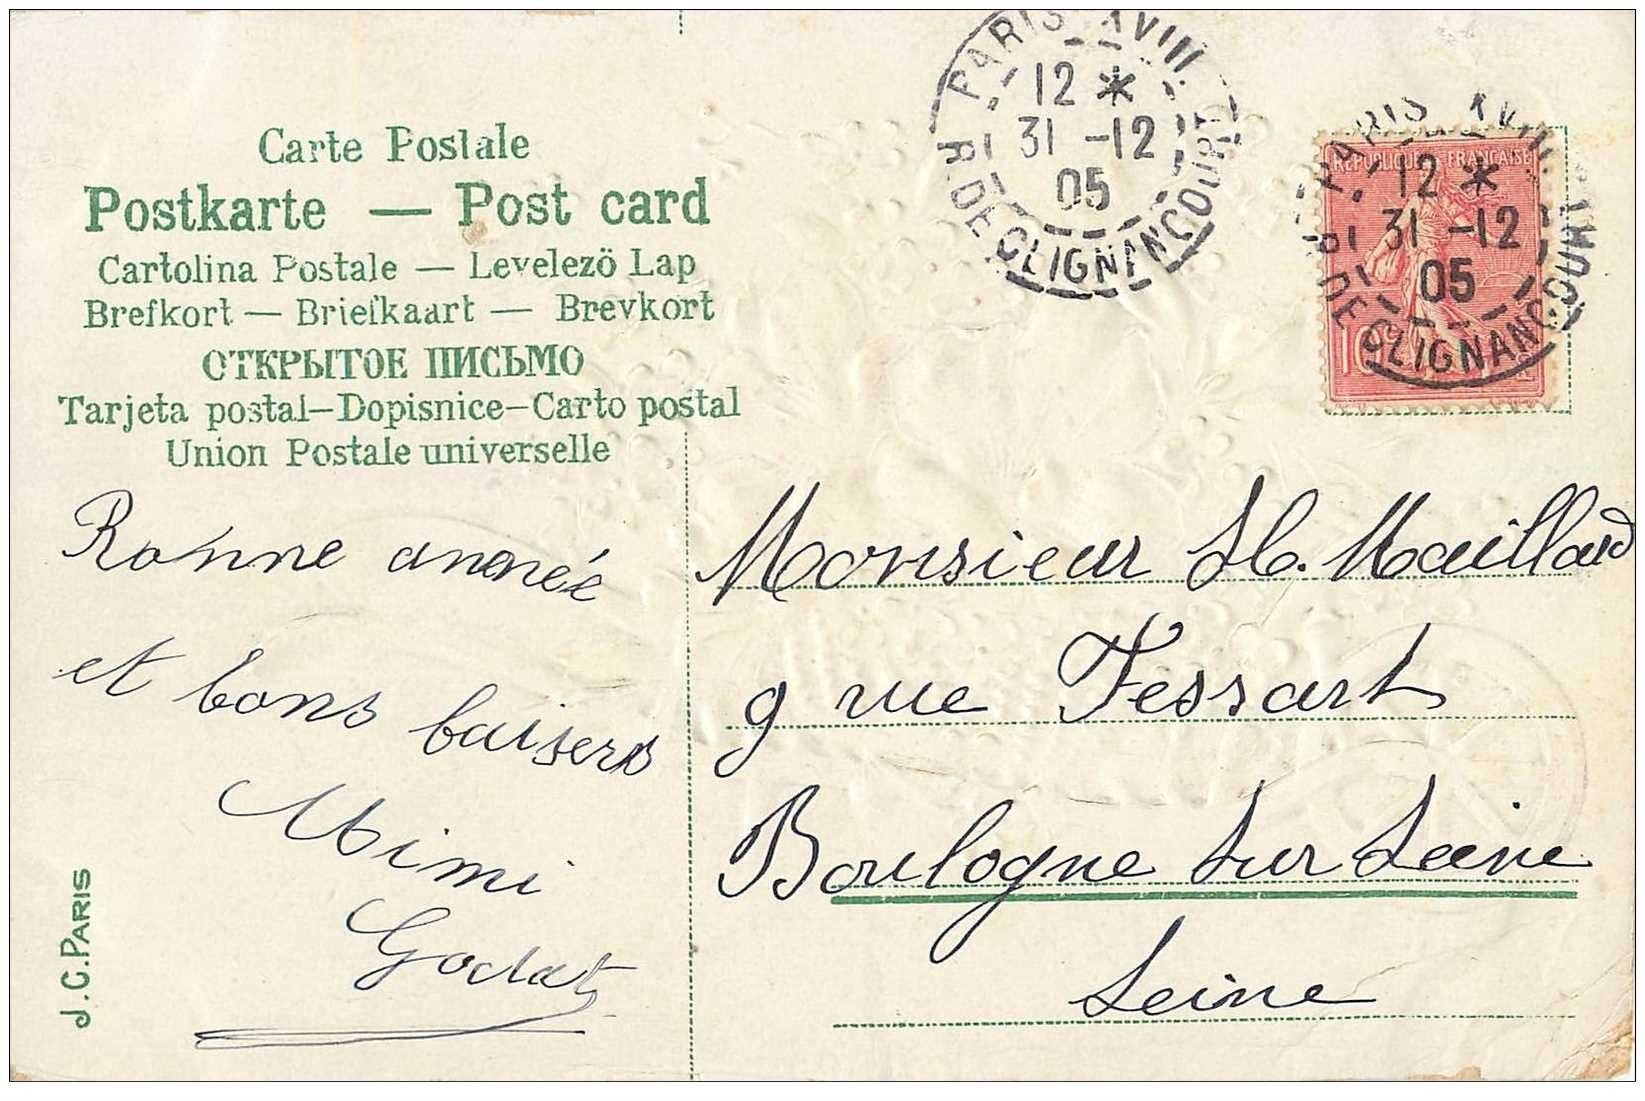 Carte Postale
Postkarte — Post card
Cartolina Postale — Levelezö Lap
Brefkort — Briefkaart — Brevkort
ОТКРЫТОЕ ПИСЬМО
Tarjeta postal—Dopisnice—Carto postal
Union Postale universelle
PARIS XVIII.
12 *
31 -12
05
R. DE CLIGNANCOURT
REPUBLIQUE FRANÇAISE
10
PARIS XVIII.
12 *
31 -12
05
R. DE CLIGNANCOURT
Bonne année
et bons baisers
Mimi
Godat
Monsieur H. Maillard
9 rue Fessart
Boulogne sur Seine
Seine
J.C. PARIS